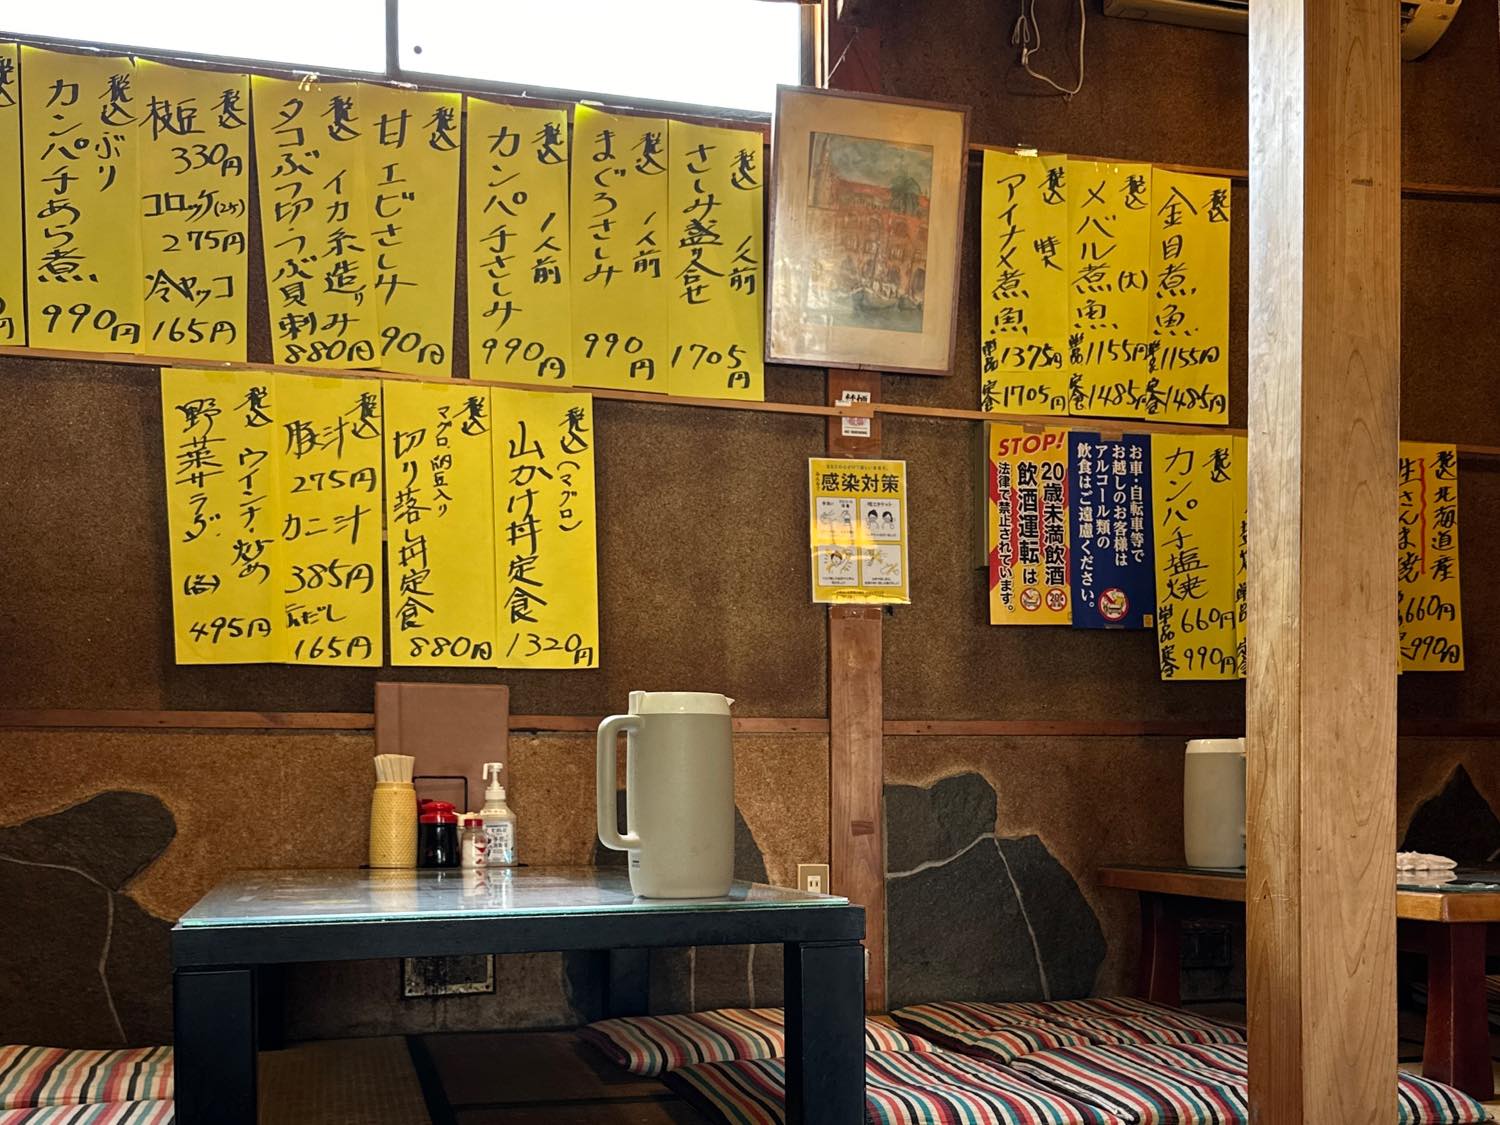 税込
ぶり
カンパチあら煮
990円
税込
枝豆
330円
コロッケ(2ケ)
275円
冷ヤッコ
165円
税込
イカ糸造り
タコぶつ切り
つぶ貝刺み
880円
税込
甘エビさしみ
90円
税込
カンパチさしみ
1人前
990円
税込
まぐろさしみ
1人前
990円
税込
さしみ盛り合せ
1人前
1705円
税込
アイナメ煮魚
単品1375円
定食1705円
税込
メバル煮魚(大)
単品1155円
定食1485円
税込
金目煮魚
単品1155円
定食1485円
税込
ウインナー炒め
野菜サラダ
(各)
495円
税込
豚汁
275円
カニ汁
385円
165円
税込
マグロ納豆入り
切り落し丼定食
880円
税込
(マグロ)
山かけ丼定食
1320円
感染対策
STOP!
20歳未満飲酒
飲酒運転は
法律で禁止されています。
お車・自転車等で
お越しのお客様は
アルコール類の
飲食はご遠慮ください。
税込
カンパチ塩焼
単品660円
定食990円
税込
北海道産
生さんま焼
660円
990円